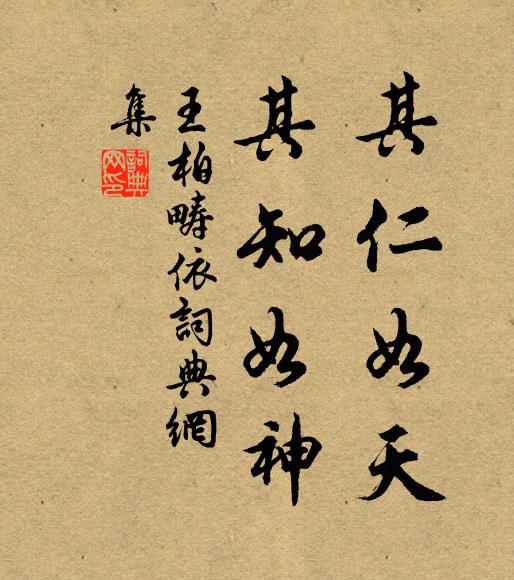 其仁如天
其知如神
王柏畴依詞典網
集
詞典
网印